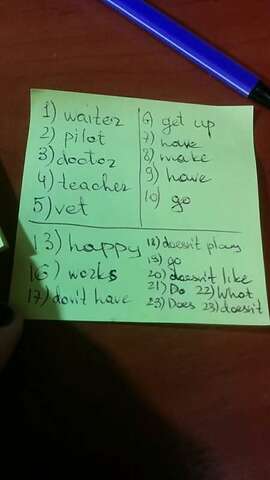 1) waiter
2) pilot
3) doctor
4) teacher
5) vet
6) get up
7) have
8) make
9) have
10) go
13) happy
16) works
17) don't have
18) doesn't play
19) go
20) doesn't like
21) Do 22) What
23) Does 23) doesn't